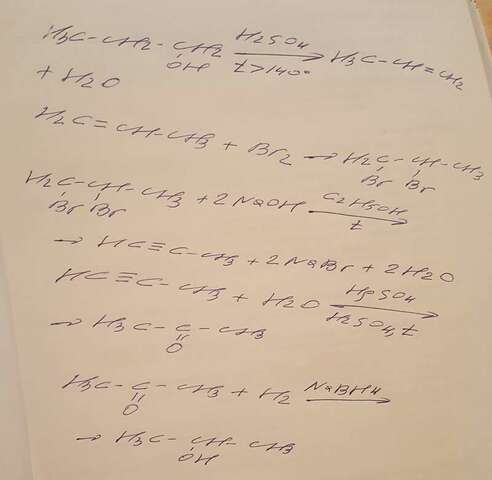 H3C-CH2-CH2 H2SO4 → H3C-CH=CH2
OH t>140°
+ H2O
H2C=CH-CH3 + Br2 → H2C-CH-CH3
Br Br
H2C-CH-CH3 + 2NaOH C2H5OH →
Br Br t
→ HC≡C-CH3 + 2NaBr + 2H2O
HC≡C-CH3 + H2O HgSO4 →
H2SO4, t
→ H3C-C-CH3
O
H3C-C-CH3 + H2 NaBH4 →
O
→ H3C-CH-CH3
OH